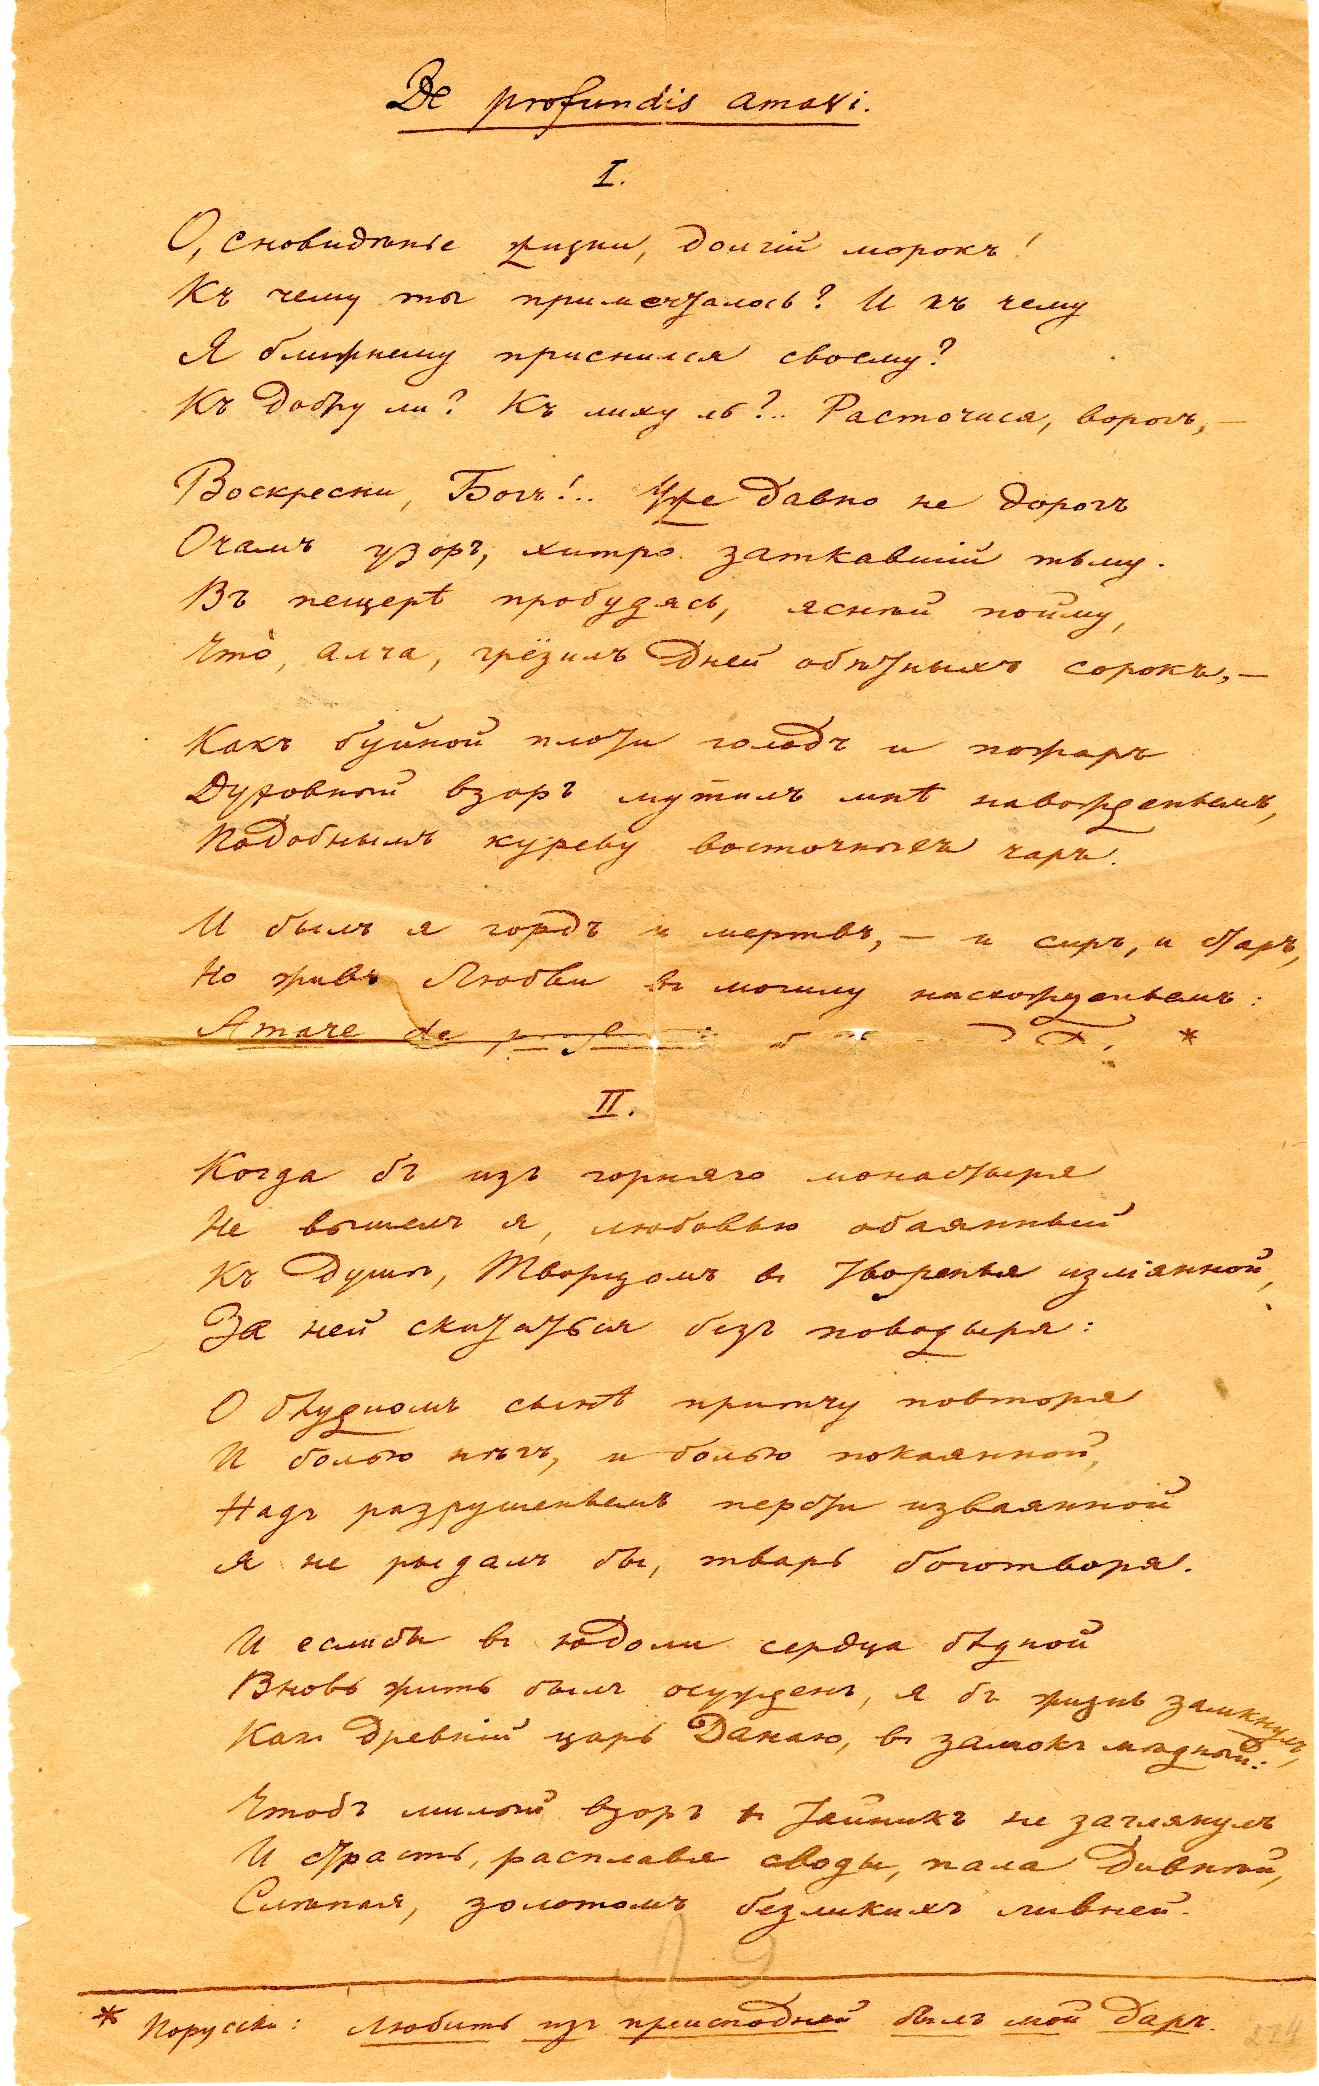 De profundis amavi.
I.
О, сновидѣнье жизни, долгій морокъ!
Къ чему ты примечталось? И къ чему
Я ближнему приснился своему?
Къ добру ли? Къ лиху ль?.. Расточися, ворогъ, –
Воскресни, Богъ!.. Уже давно не дорогъ
Очамъ узоръ, хитро заткавшій тьму.
Въ пещерѣ пробудясь, яснѣй пойму,
Что̀, алча, грёзилъ дней обѣтныхъ сорокъ, –
Какъ буйной плоти голодъ и пожаръ
Духовный взоръ мутилъ мнѣ навожденьемъ,
Подобнымъ куреву восточныхъ чаръ.
И былъ я гордъ и мертвъ, – и сиръ, и старъ,
Но живъ Любви въ могилу нисхожденьемъ:
Amare de *
II.
Когда бъ изъ горняго монастыря
Не вышелъ я, любовью обаянный
Къ Душѣ, Творцомъ въ творенья излiянной,
За ней скитаться безъ поводыря:
О блудномъ сынѣ притчу повторя
И болью нѣгъ, и болью покаянной,
Надъ разрушеньемъ персти изваянной
Я не рыдалъ бы, тварь боготворя.
И если бы въ юдоли сердца бѣдной
Вновь жить былъ осужденъ, я бъ жизнь замкнулъ,
Какъ древній царь Данаю, въ замокъ мѣдный:
Чтобъ милый взоръ въ тайникъ не заглянулъ
И страсть, расплавя своды, пала дивный,
Слѣпая, золотомъ безликихъ ливней.
* Порусски: Любить изъ преисподней былъ мой даръ.
224